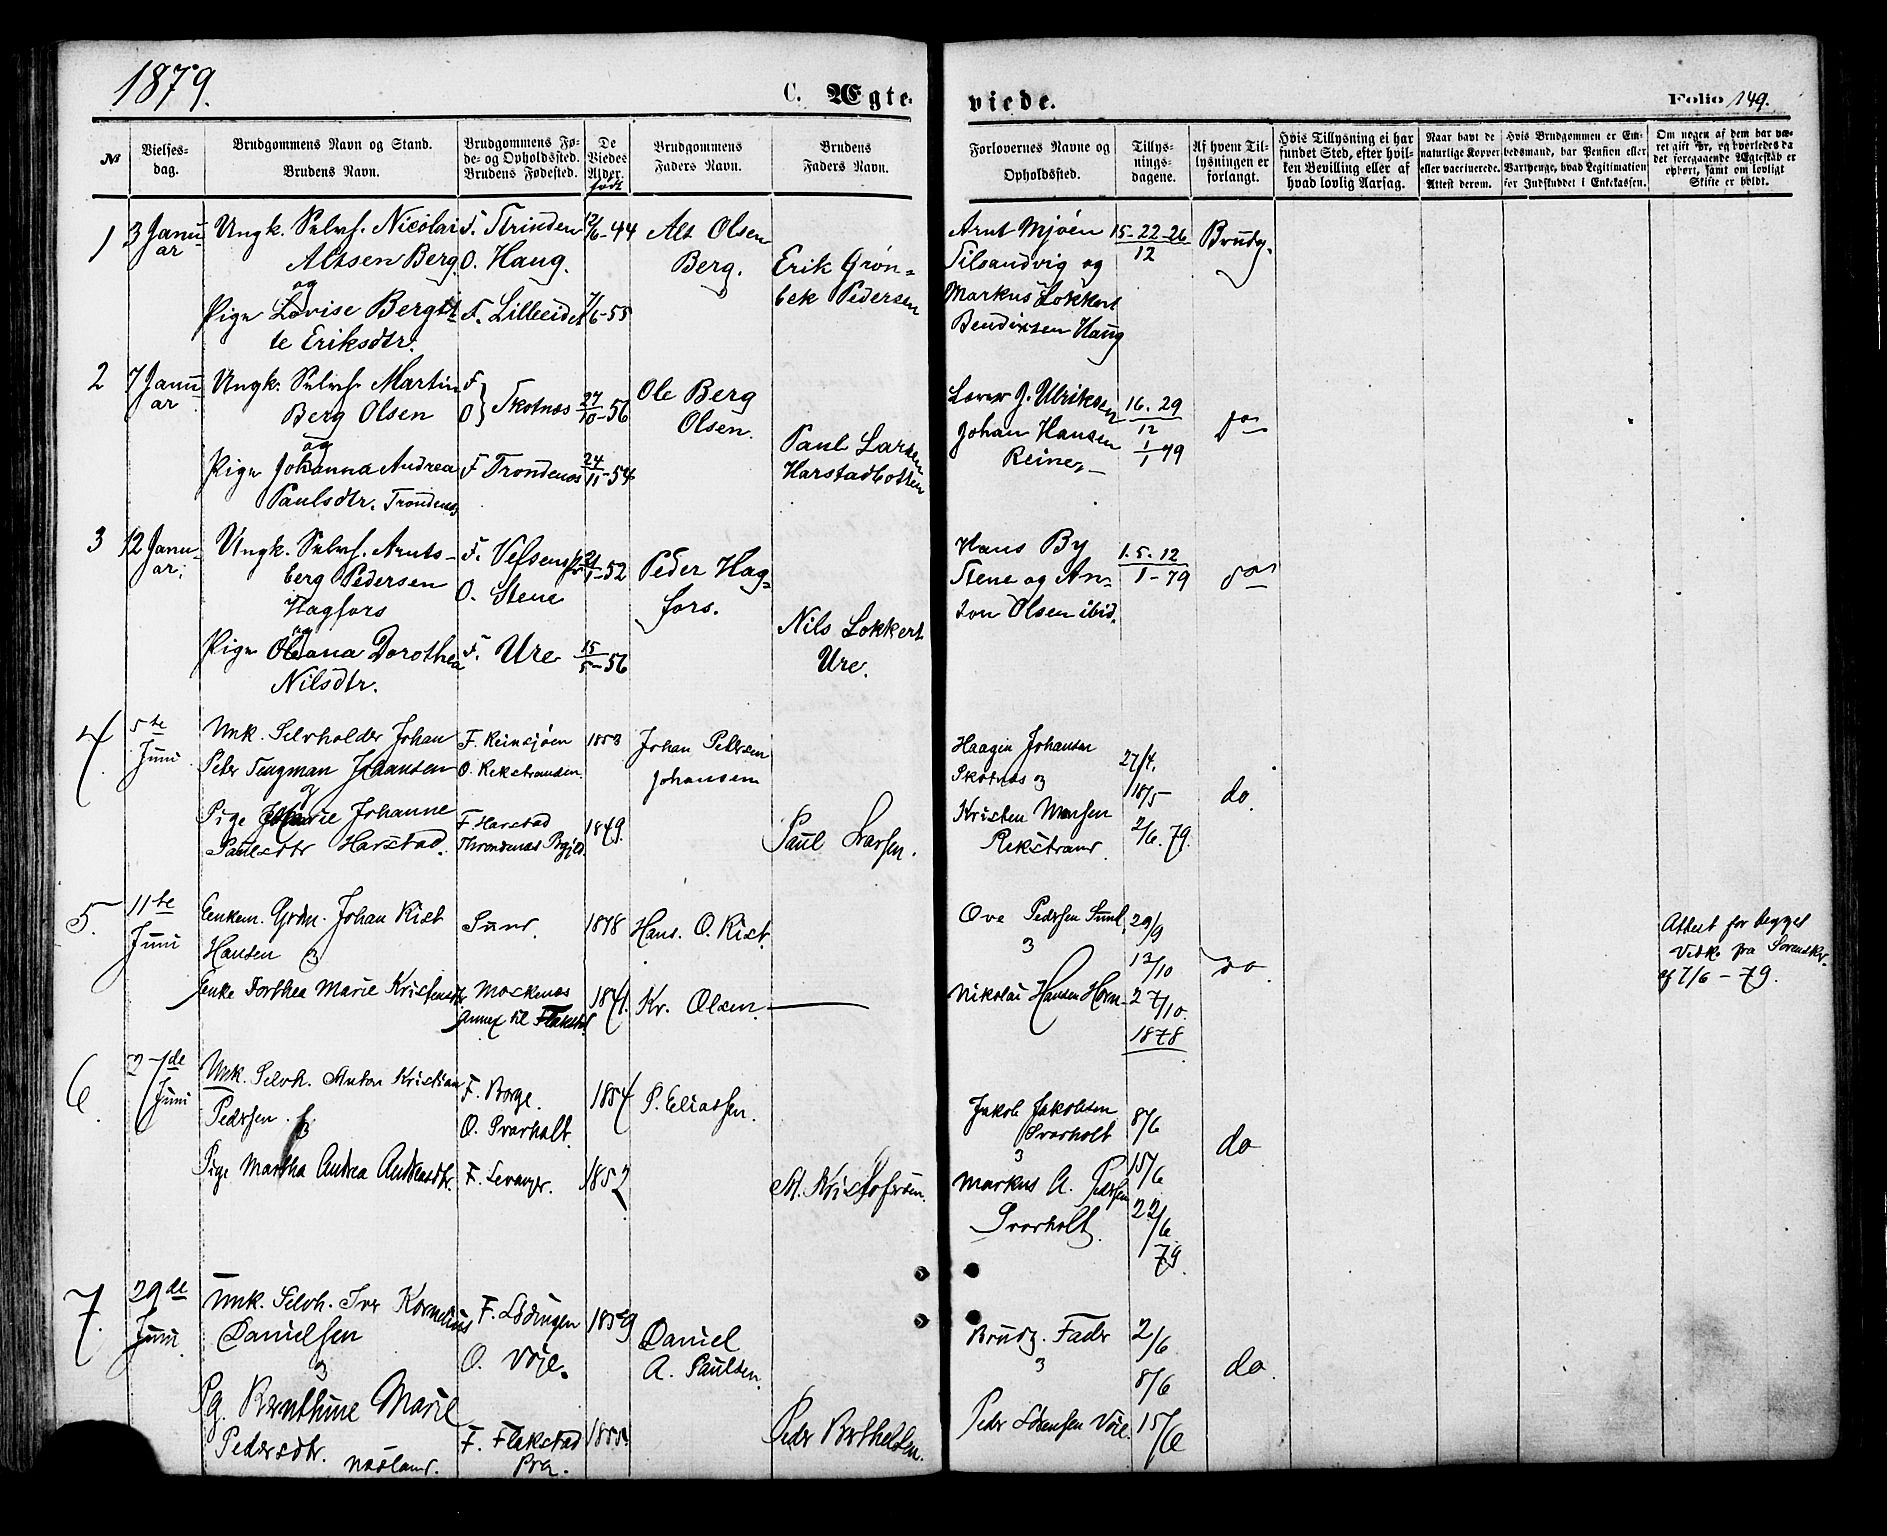 1879.
C. Ægte-
viede.
Folio 149.
№
Vielses-
dag.
Brudgommens Navn og Stand.
Brudens Navn.
Brudgommens Fø-
de- og Opholdssted.
Brudens Fødested.
De
Viedes
Alder.
født
Brudgommens
Faders Navn.
Brudens
Faders Navn.
Forlovernes Navne og
Opholdssted.
Tillys-
nings-
dagene.
Af hvem Til-
lysningen er
forlangt.
Hvis Tillysning ei har
fundet Sted, efter hvil-
ken Bevilling eller af
hvad lovlig Aarsag.
Naar havt de
naturlige Kopper
eller vaccinerede.
Attest derom.
Hvis Brudgommen er Em-
bedsmand, har Pension eller
Vartpenge, hvad Legitimation
for Indskuddet i Enkekassen.
Om nogen af dem har væ-
ret gift før, og hvorledes da
det foregaaende Ægteskab er
ophørt, samt om lovligt
Skifte er holdt.
1
3 Janu-
ar
Ungk. Selvf. Nicolai
Altsen Berg
og
Pige Lovise Bergit-
te Eriksdtr.
F. Strinden
O. Haug.
F. Lilleeidet
12/6-44
7/6-55
Alt Olsen
Berg.
Erik Grøn-
bek Pedersen
Arnt Mjöen
Tilsandvig og
Markus Lokkert
Bendixsen Haug
15-22-26
12
Brudg.
2
7 Janu
ar
Ungk. Selvf. Martin
Berg Olsen
og
Pige Johanna Andrea
Paulsdtr. Trondenæs
F
O } Skotnæs
F Trondenæs
27/10-56
24/11-54
Ole Berg
Olsen.
Paul Larsen
Harstadbotten
Lærer J. Ulriksen
Johan Hansen
Reine,-
16. 29
12
1/1 79
do
3
12 Janu-
ar.
Ungk. Selvf. Arnts-
berg Pedersen
Hagfors
og
Pige Oleana Dorothea
Nilsdtr.
F. Vefsen
O. Stene
F. Ure
21/1-52
15/5-56
Peder Hag-
fors.
Nils Lokkert
Ure.
Hans By
Stene og An-
ton Olsen ibid.
1. 5. 12
1-79
do
4
5te
Juni
Unk. Selvholder Johan
Peter Tengman Johansen
og
Pige Marie Johanne
Paulsdtr Harstad.
F. Reinsjöen
O. Rekstranden.
F. Harstad
Throndenæs Pgjld.
1853
1849.
Johan Petersen
Johansen
Paul Larsen.
Haagen Johansen
Skotnæs og
Kristen Monsen
Rekstrand.
27/4.
18/5
2/6. 79.
do
5.
11te
Juni
Enkem. Grdm. Johan Kist
Hansen og
Enke Dorthea Marie Kristensdtr
Sund.
Moskenæs
Annex til Flakstad
1848
1841.
Hans. O. Kist.
Kr. Olsen.
Ove Pedersen Sund.
og
Nikolai Hansen Horn
29/9
13/10
27/10.
1878
do
Attest for begges
Vedk. fra Sorenskr.
af 7/6 - 79.
6
27de
Juni
Unk. Selvh. Anton Kristian
Pedersen.
og
Pige Martha Andrea Andreasdtr.
F. Borge.
O. Svarholt.
F. Levanger.
1854
1852
P. Eliassen.
A. Kristofersen.
Jakob Jakobsen
Svarholt
og
Markus A. Pedersen
Svarholt.
8/6
15/6
22/6
79.
do
7.
29de
Juni.
Unk. Selvh. Iver Kornelius
Danielsen
og
Pg. Bernthine Marie
Pedersdtr. Næsland.
F. Lødingen
O. Voje.
F. Flakstad
Prg.
1859
1855.
Daniel
A. Paulsen.
Peder Berthelsen.
Brudg. Fader
og
Peder Sörensen Voje.
2/6
8/6
15/6
do.